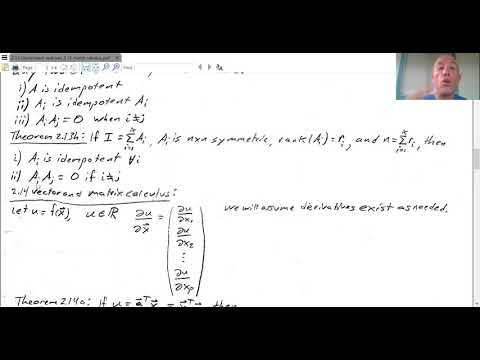 i) A is idempotent
ii) Ai is idempotent ∀i
iii) AiAj = 0 when i≠j
Theorem 2.13h: If I = Σ_{i=1}^{k} Ai, Ai is n×n symmetric, rank(Ai)=ri, and n=Σ_{i=1}^{k} ri, then
i) Ai is idempotent ∀i
ii) AiAj = 0 if i≠j
2.14 vector and matrix calculus:
Let u=f(x⃗), u∈ℝ ∂u/∂x⃗ = (∂u/∂x₁ ∂u/∂x₂ ⋮ ∂u/∂xp) we will assume derivatives exist as needed.
Theorem 2.14a: If u = a⃗ᵀx⃗ = x⃗ᵀa⃗, then